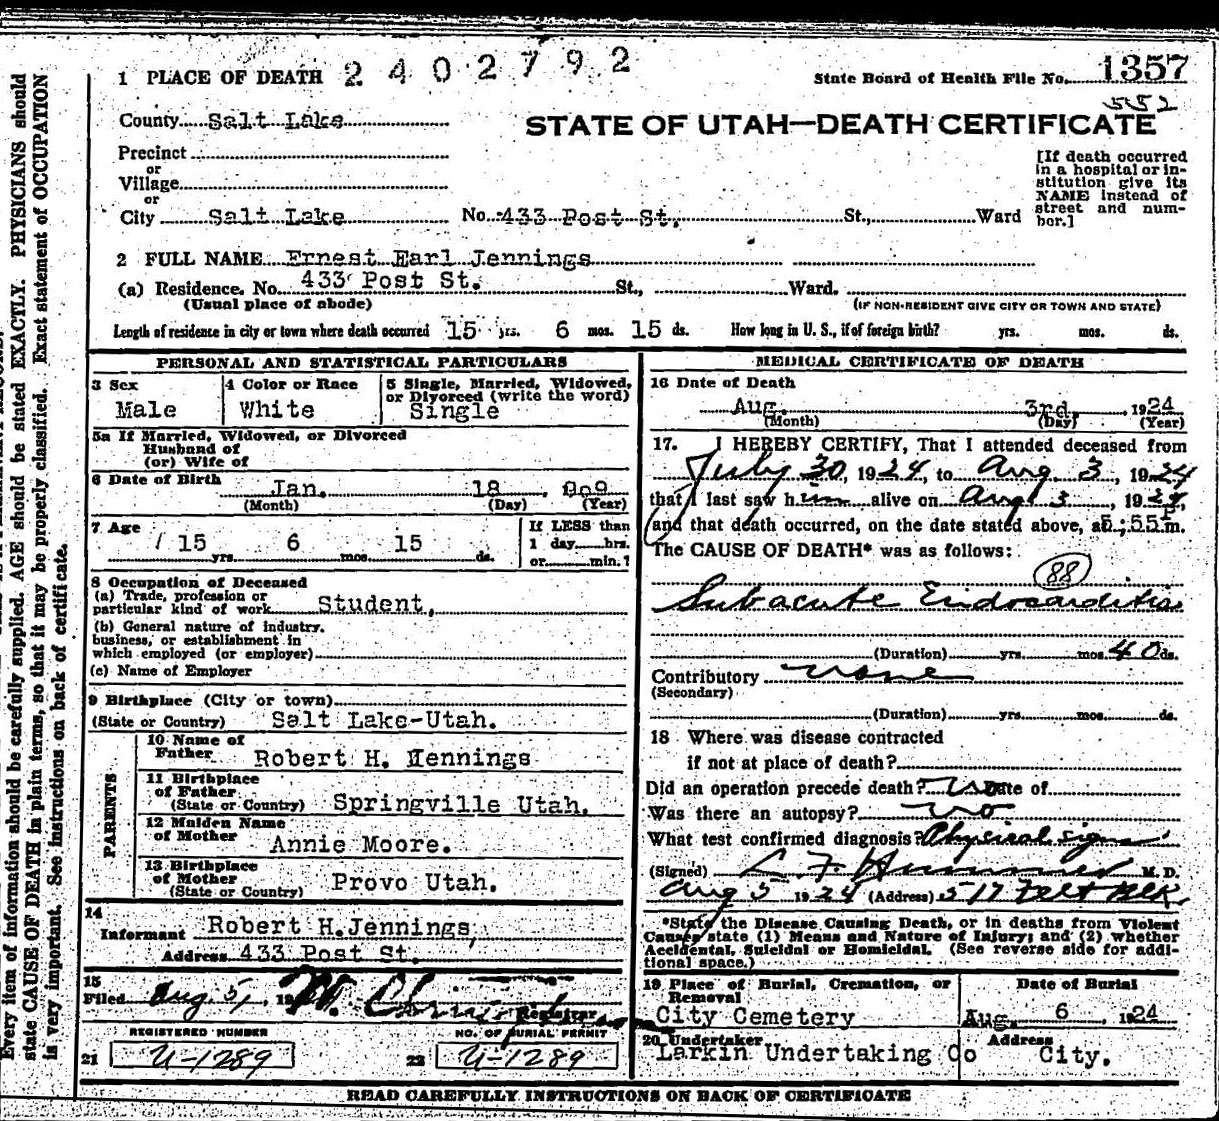 1 PLACE OF DEATH 2402792
State Board of Health File No. 1357
552
County Salt Lake
STATE OF UTAH—DEATH CERTIFICATE
Precinct
or
Village
or
City Salt Lake No. 433 Post St. St., Ward
[If death occurred
in a hospital or in-
stitution give its
NAME instead of
street and num-
ber.]
2 FULL NAME Ernest Earl Jennings
(a) Residence. No. 433 Post St. St., Ward.
(Usual place of abode) (IF NON-RESIDENT GIVE CITY OR TOWN AND STATE)
Length of residence in city or town where death occurred 15 yrs. 6 mos. 15 ds. How long in U. S., if of foreign birth? yrs. mos. ds.
PERSONAL AND STATISTICAL PARTICULARS
3 Sex
Male
4 Color or Race
White
5 Single, Married, Widowed,
or Divorced (write the word)
Single
5a If Married, Widowed, or Divorced
Husband of
(or) Wife of
6 Date of Birth
Jan. 18 909
(Month) (Day) (Year)
7 Age
15 yrs. 6 mos. 15 ds.
If LESS than
1 day hrs.
or min.?
8 Occupation of Deceased
(a) Trade, profession or
particular kind of work Student,
(b) General nature of industry,
business, or establishment in
which employed (or employer)
(c) Name of Employer
9 Birthplace (City or town)
(State or Country) Salt Lake-Utah.
PARENTS
10 Name of
Father Robert H. Jennings
11 Birthplace
of Father
(State or Country) Springville Utah.
12 Maiden Name
of Mother Annie Moore.
13 Birthplace
of Mother
(State or Country) Provo Utah.
14
Informant Robert H.Jennings
Address 433 Post St.
15
Filed Aug. 5, 19
Registrar
REGISTERED NUMBER
21 U-1289
NO. OF BURIAL PERMIT
22 U-1289
MEDICAL CERTIFICATE OF DEATH
16 Date of Death
Aug. 3rd. 1924
(Month) (Day) (Year)
17. I HEREBY CERTIFY, That I attended deceased from
July 30, 1924, to Aug. 3, 1924
that I last saw him alive on Aug 3, 1924,
and that death occurred, on the date stated above, at 5;55 P m.
The CAUSE OF DEATH* was as follows:
88
Subacute Endocarditis
(Duration) yrs. mos. 40 ds.
Contributory none
(Secondary)
(Duration) yrs. mos. ds.
18 Where was disease contracted
if not at place of death?
Did an operation precede death? no Date of
Was there an autopsy? no
What test confirmed diagnosis? Physical signs
(Signed) L. F. Hummer M. D.
Aug 5 1924 (Address) 517 Felt Blk.
*State the Disease Causing Death, or in deaths from Violent
Causes, state (1) Means and Nature of Injury; and (2) whether
Accidental, Suicidal or Homicidal. (See reverse side for addi-
tional space.)
19 Place of Burial, Cremation, or
Removal
City Cemetery
Date of Burial
Aug. 6, 1924
20 Undertaker
Larkin Undertaking Co
Address
City.
READ CAREFULLY INSTRUCTIONS ON BACK OF CERTIFICATE
Every item of information should be carefully supplied. AGE should be stated EXACTLY. PHYSICIANS should
state CAUSE OF DEATH in plain terms, so that it may be properly classified. Exact statement of OCCUPATION
is very important. See instructions on back of certificate.